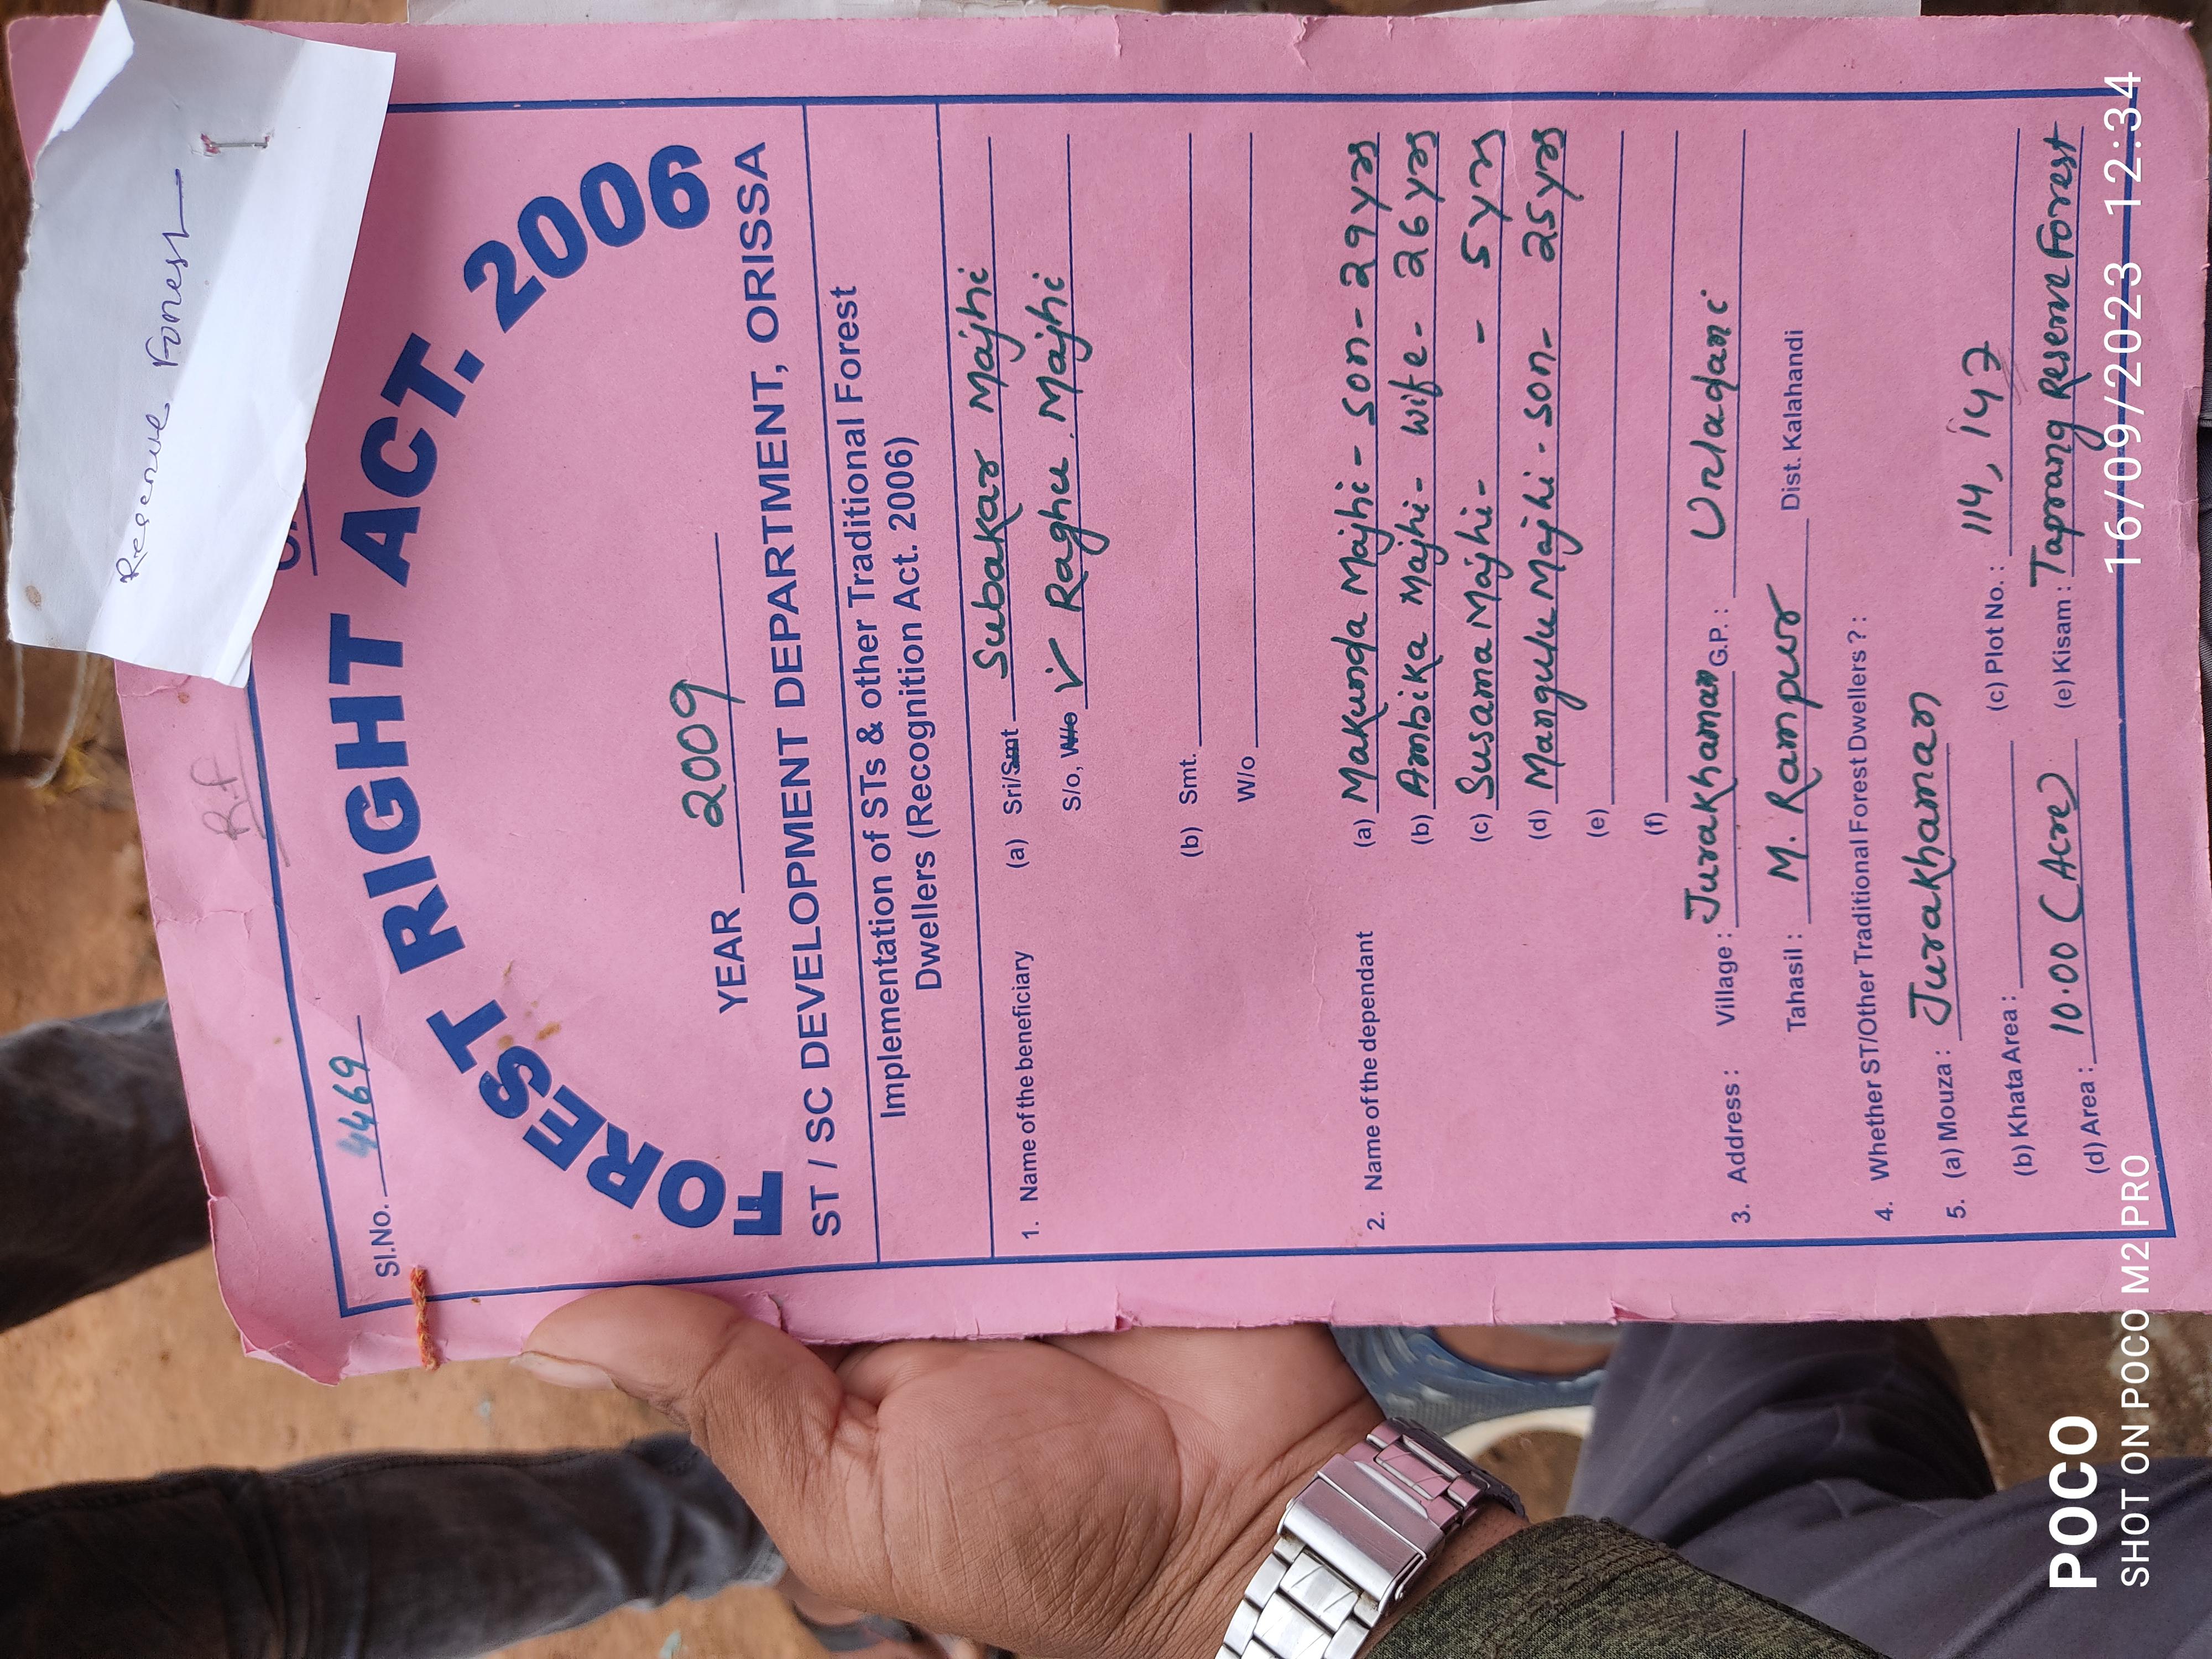 Reserve Forest
R.f
Sl.No. 4469
FOREST RIGHT ACT. 2006
YEAR 2009
ST / SC DEVELOPMENT DEPARTMENT, ORISSA
Implementation of STs & other Traditional Forest
Dwellers (Recognition Act. 2006)
1. Name of the beneficiary (a) Sri/Smt Subakar Majhi
S/o, W/o Raghu Majhi
(b) Smt.
W/o
2. Name of the dependant (a) Makunda Majhi - son - 29 yrs
(b) Ambika Majhi - wife - 26 yrs
(c) Susama Majhi - - 5 yrs
(d) Mangulu Majhi - son - 25 yrs
(e)
(f)
3. Address : Village : Jurakhaman G.P. : Urladani
Tahasil : M. Rampur Dist. Kalahandi
4. Whether ST/Other Traditional Forest Dwellers ? :
5. (a) Mouza : Jurakhaman
(b) Khata Area : (c) Plot No. : 114, 147
(d) Area : 10.00 (Acre) (e) Kisam : Taprang Reserve Forest
POCO
SHOT ON POCO M2 PRO
16/09/2023 12:34